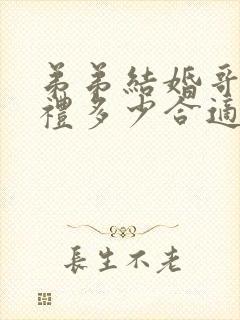 弟弟結婚哥
禮多少合適
長生不老